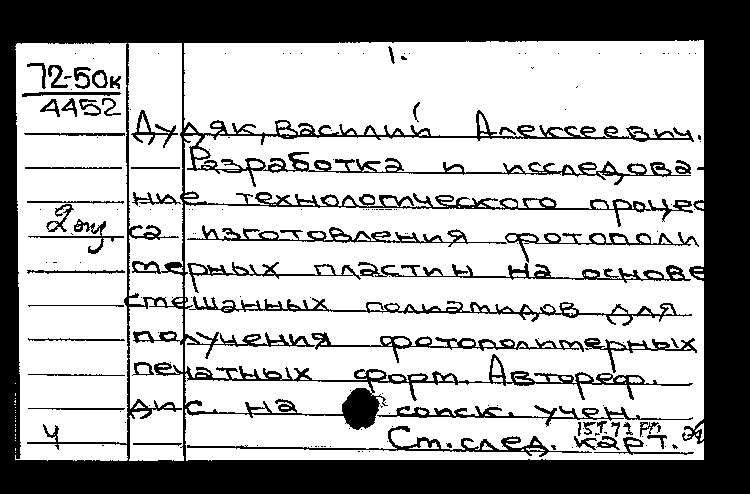 1.
72-50к
4452
Дудяк, Василий Алексеевич.
Разработка и исследова-
ние технологического процес
са изготовления фотополи
мерных пластин на основе
смешанных полиамидов для
получения фотополимерных
печатных форм. Автореф.
дис. на соиск. учен.
Ст. след. карт.
2 экз.
Ч